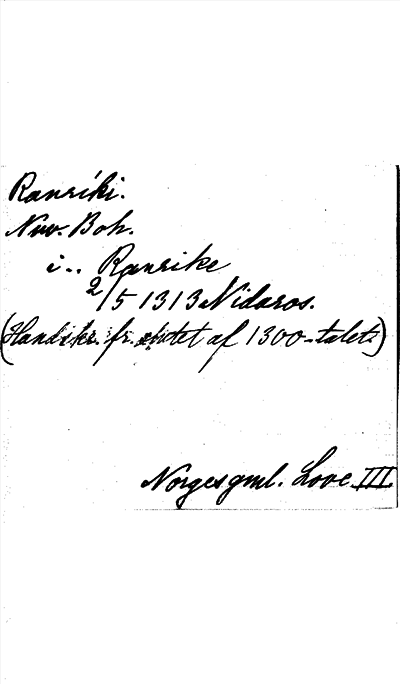 Ranríki.
Nuv. Boh.
i.. Ranrike
2/5 1313 Nidaros.
(Handskr. fr. slutet af 1300-talet)
Norges gml. Love III